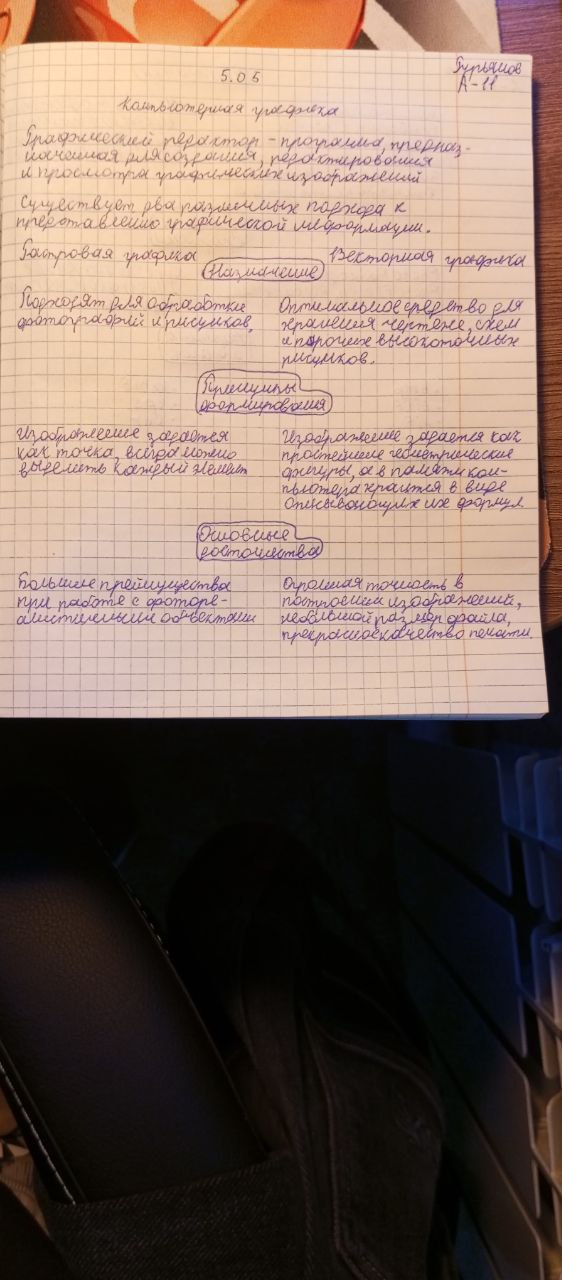 5.05
Гурьянов
А-11
Компьютерная графика
Графический редактор - программа, предназ-
наченная для создания, редактирования
и просмотра графических изображений
Существует два различных подхода к
представлению графической информации.
Растровая графика
Векторная графика
Назначение
Подходят для обработки
фотографий и рисунков.
Оптимальное средство для
хранения чертеже, схем
и прочих высокоточных
рисунков.
Принципы
формирования
Изображение задается
как точка, всегда можно
выделить каждый элемент
Изображение задается как
простейшие геометрические
фигуры, а в памяти ком-
пьютера хранится в виде
описывающих их формул.
Основные
достоинства
Большие преимущества
при работе с фоторе-
алистичными объектами
Огромная точность в
построении изображений,
небольшой размер файла,
прекрасное качество печати.